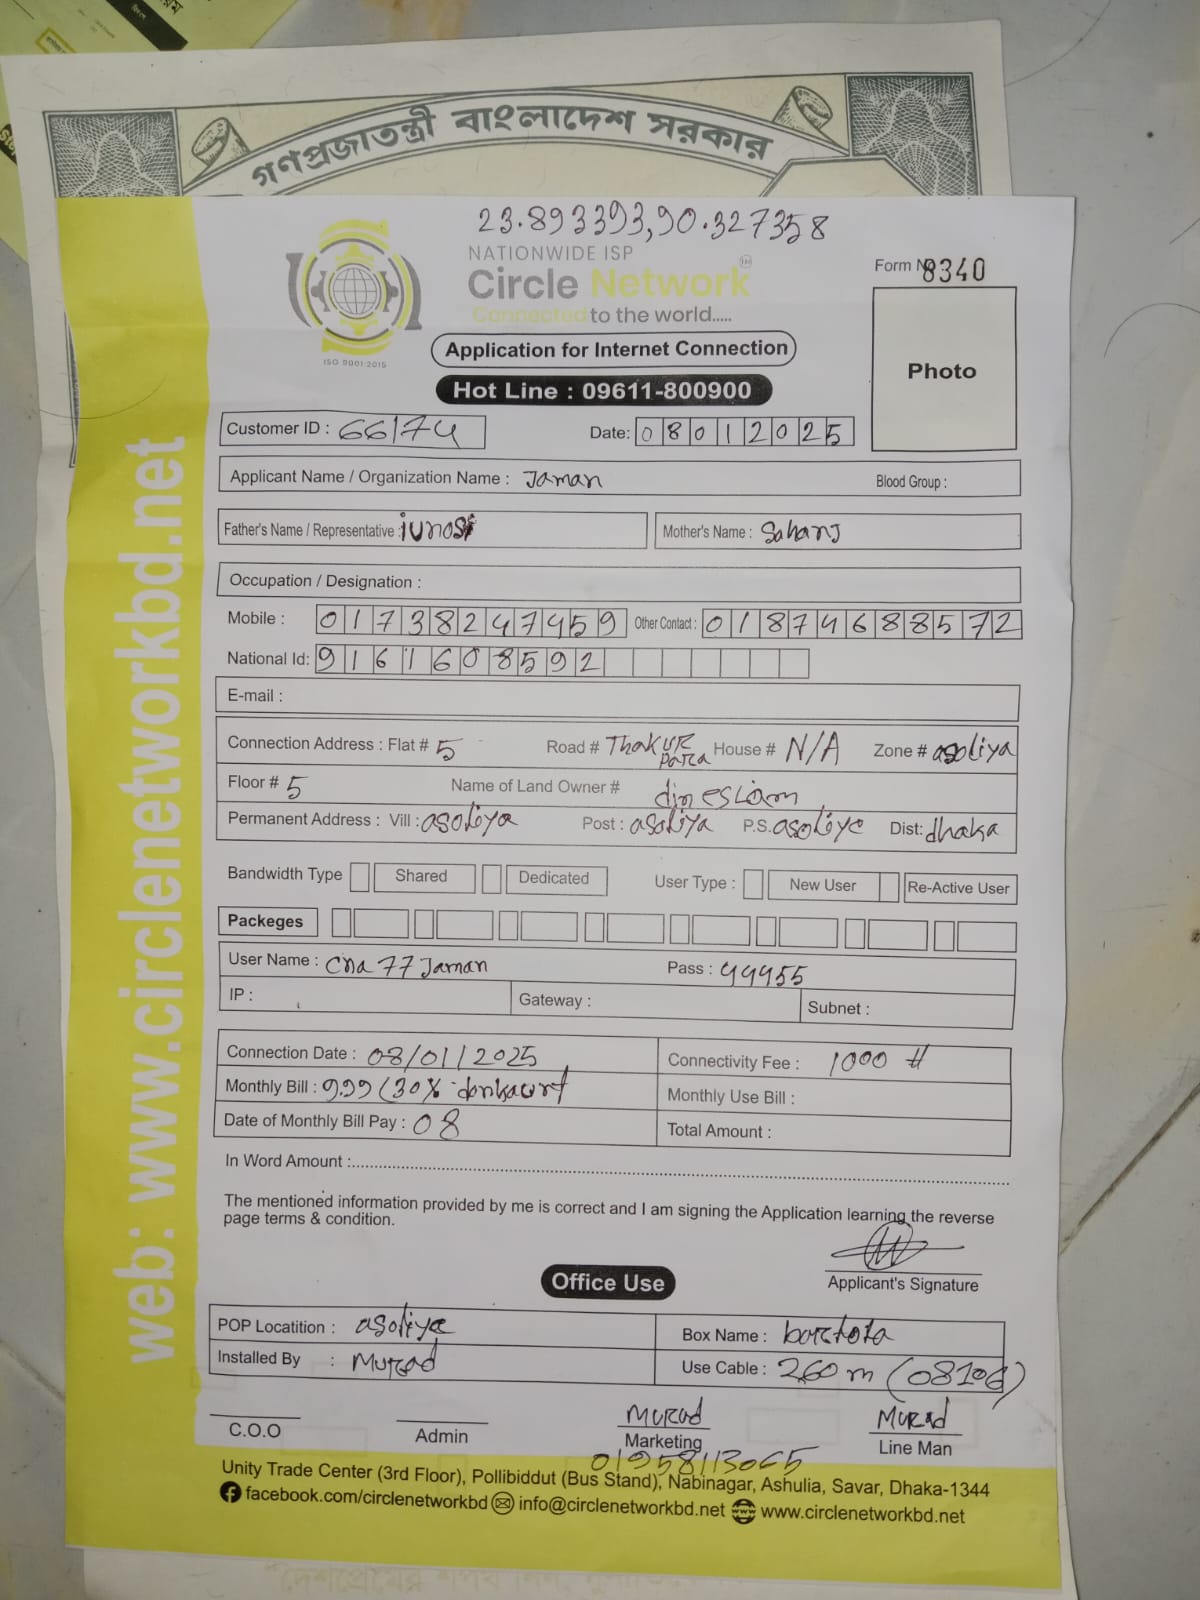 গণপ্রজাতন্ত্রী বাংলাদেশ সরকার
23.893393,90.327358
NATIONWIDE ISP
Circle Network
Connected to the world.....
ISO 9001:2015
Form No 8340
Photo
Application for Internet Connection
Hot Line : 09611-800900
Customer ID : 66174
Date: 08012025
Applicant Name / Organization Name : Jaman
Blood Group :
Father's Name / Representative :
Mother's Name :
Occupation / Designation :
Mobile : 01738247459 Other Contact : 01874688572
National Id: 9161608592
E-mail :
Connection Address : Flat # 5 Road # Thakur Para House # N/A Zone # asoliya
Floor # 5 Name of Land Owner # din eslam
Permanent Address : Vill : asoliya Post : asoliya P.S. asoliye Dist: dhaka
Bandwidth Type Shared Dedicated User Type : New User Re-Active User
Packeges
User Name : cna77Jaman Pass : 44455
IP : Gateway : Subnet :
Connection Date : 08/01/2025 Connectivity Fee : 1000
Monthly Bill : 999 (30% Monthly Use Bill :
Date of Monthly Bill Pay : 08 Total Amount :
In Word Amount :
The mentioned information provided by me is correct and I am signing the Application learning the reverse
page terms & condition.
Applicant's Signature
Office Use
POP Locatition : asoliye Box Name : bottola
Installed By : Murad Use Cable : 260 m
C.O.O Admin Murad Marketing Murad Line Man
Unity Trade Center (3rd Floor), Pollibiddut (Bus Stand), Nabinagar, Ashulia, Savar, Dhaka-1344
facebook.com/circlenetworkbd info@circlenetworkbd.net www.circlenetworkbd.net
web: www.circlenetworkbd.net